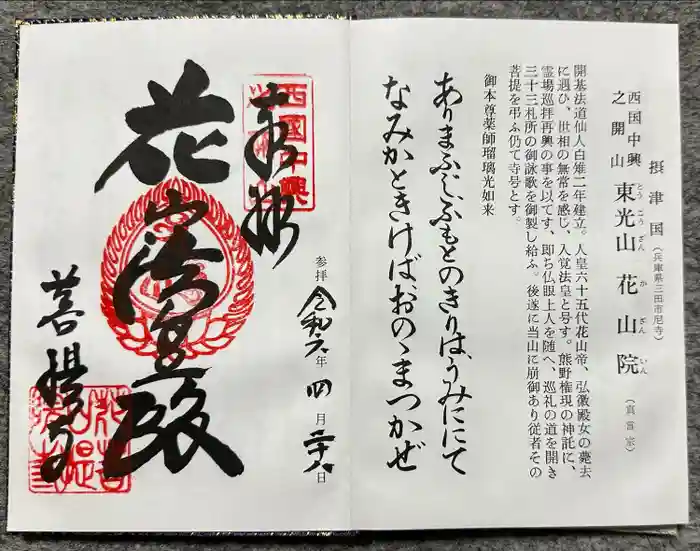 西国中興
之開山
摂津国(兵庫県三田市尼寺)
東光山 花山院(真言宗)
とうこうざん かざんいん
開基法道仙人白雉二年建立。人皇六十五代花山帝、弘徽殿女の薨去
に遇ひ、世相の無常を感じ、入覚法皇と号す。熊野権現の神託に、
霊場巡拝再興の事を以てす、即ち仏眼上人を随へ、巡礼の道を開き
三十三札所の御詠歌を御製し給ふ。後遂に当山に崩御あり従者その
菩提を弔ふ仍て寺号とす。
御本尊薬師瑠璃光如来
ありまふじふもとのきりは、うみににて
なみかときけばおのゝまつかぜ
西国中興
奉拝
参拝 令和六年 四月 二十八日
花山法皇殿
菩提寺